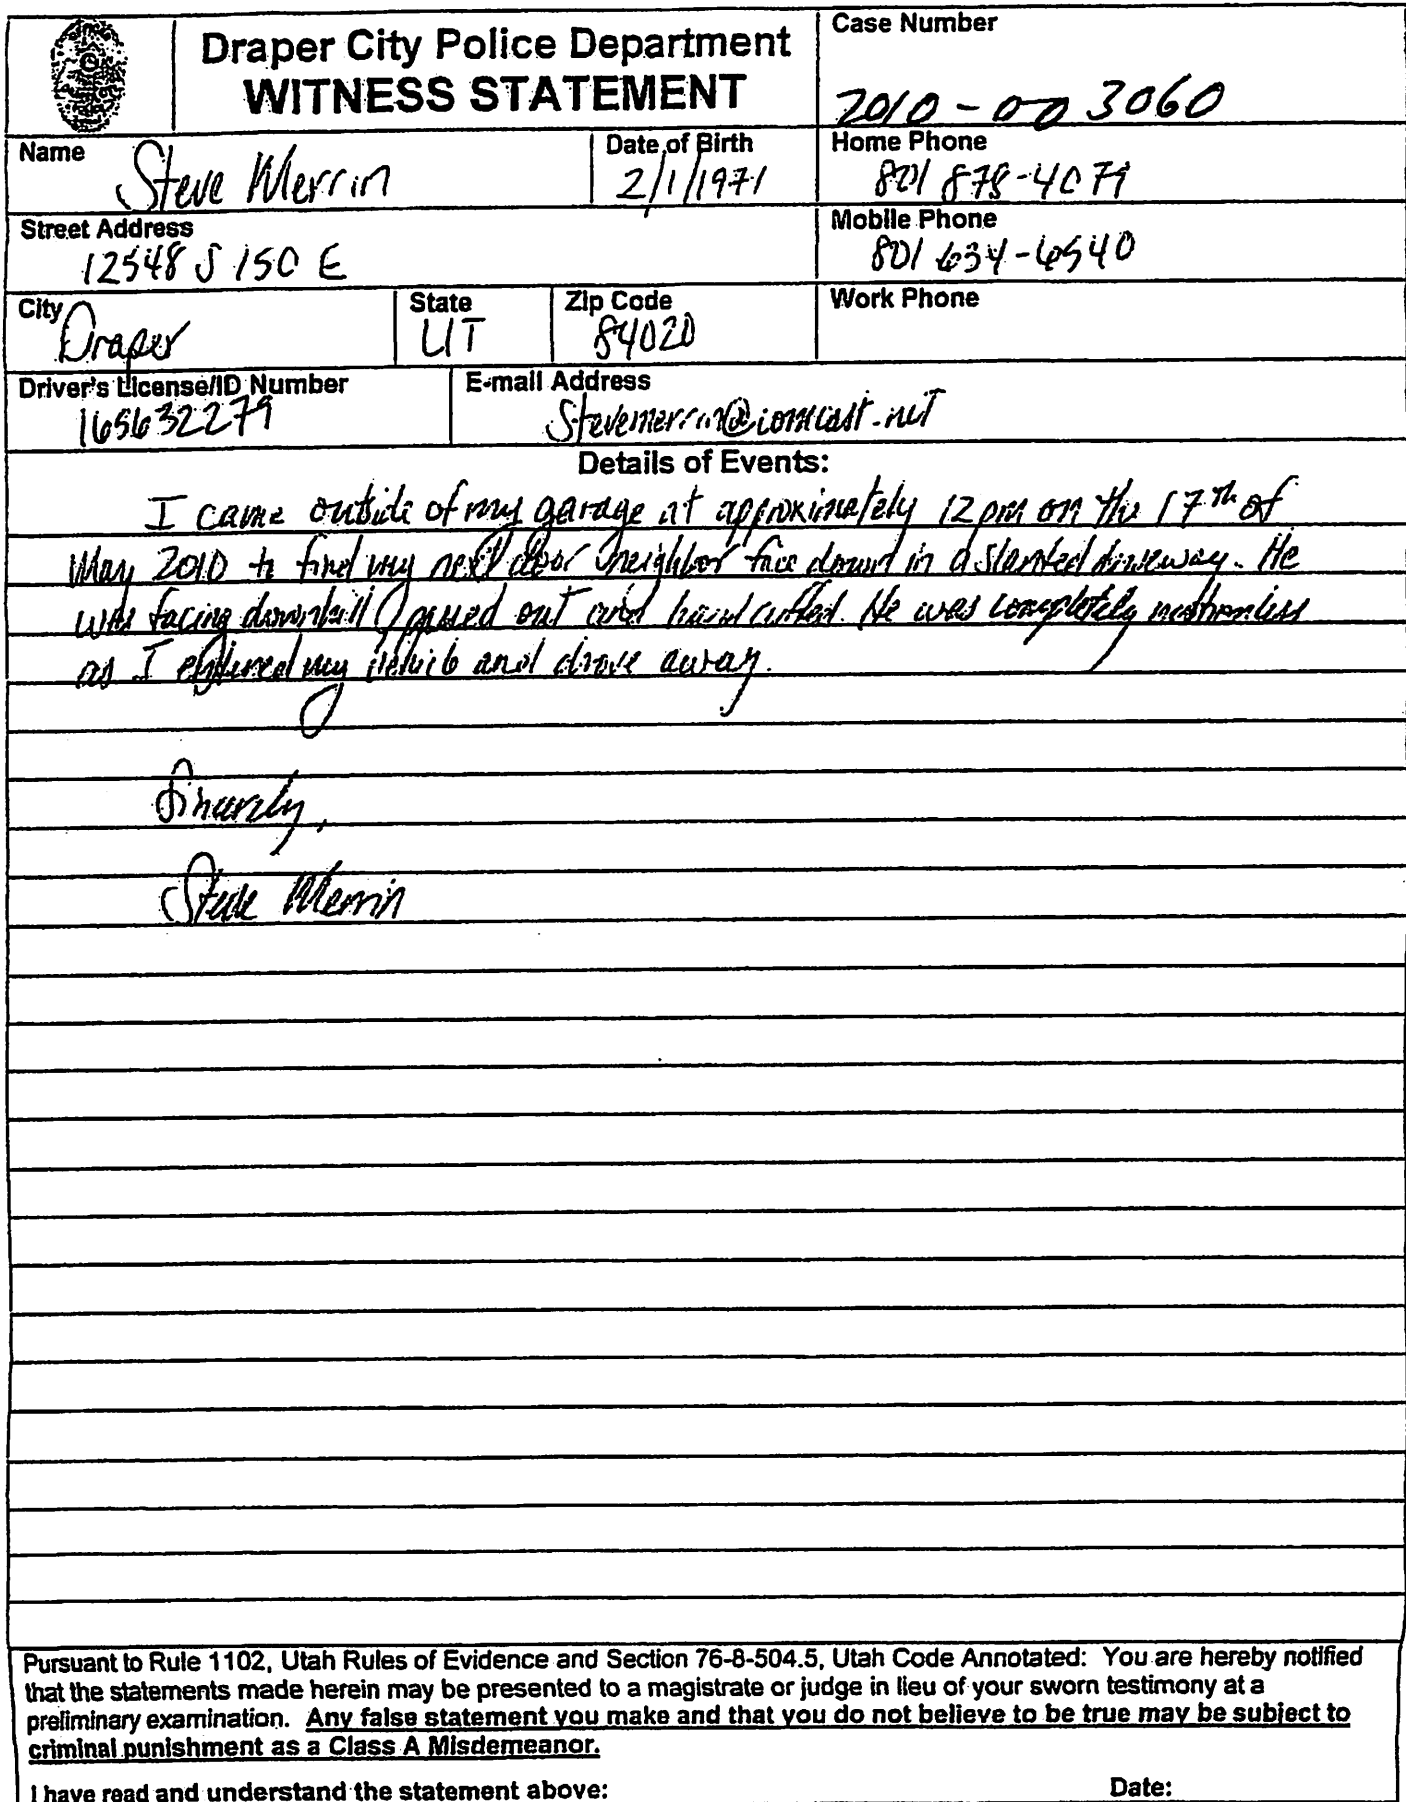 Draper City Police Department
WITNESS STATEMENT
Case Number
2010-003060
Name
Steve Merrin
Date of Birth
2/1/1971
Home Phone
801 878-4079
Street Address
12548 S 150 E
Mobile Phone
801 634-6540
City
Draper
State
UT
Zip Code
84020
Work Phone
Driver's License/ID Number
165632279
E-mail Address
Stevemerrin@comcast.net
Details of Events:
I came outside of my garage at approximately 12 pm on the 17th of
May 2010 to find my next door neighbor face down in a slanted driveway. He
was facing downhill, passed out and hand cuffed. He was completely motionless
as I entered my vehicle and drove away.
Sincerely,
Steve Merrin
Pursuant to Rule 1102, Utah Rules of Evidence and Section 76-8-504.5, Utah Code Annotated: You are hereby notified
that the statements made herein may be presented to a magistrate or judge in lieu of your sworn testimony at a
preliminary examination. Any false statement you make and that you do not believe to be true may be subject to
criminal punishment as a Class A Misdemeanor.
I have read and understand the statement above:
Date: